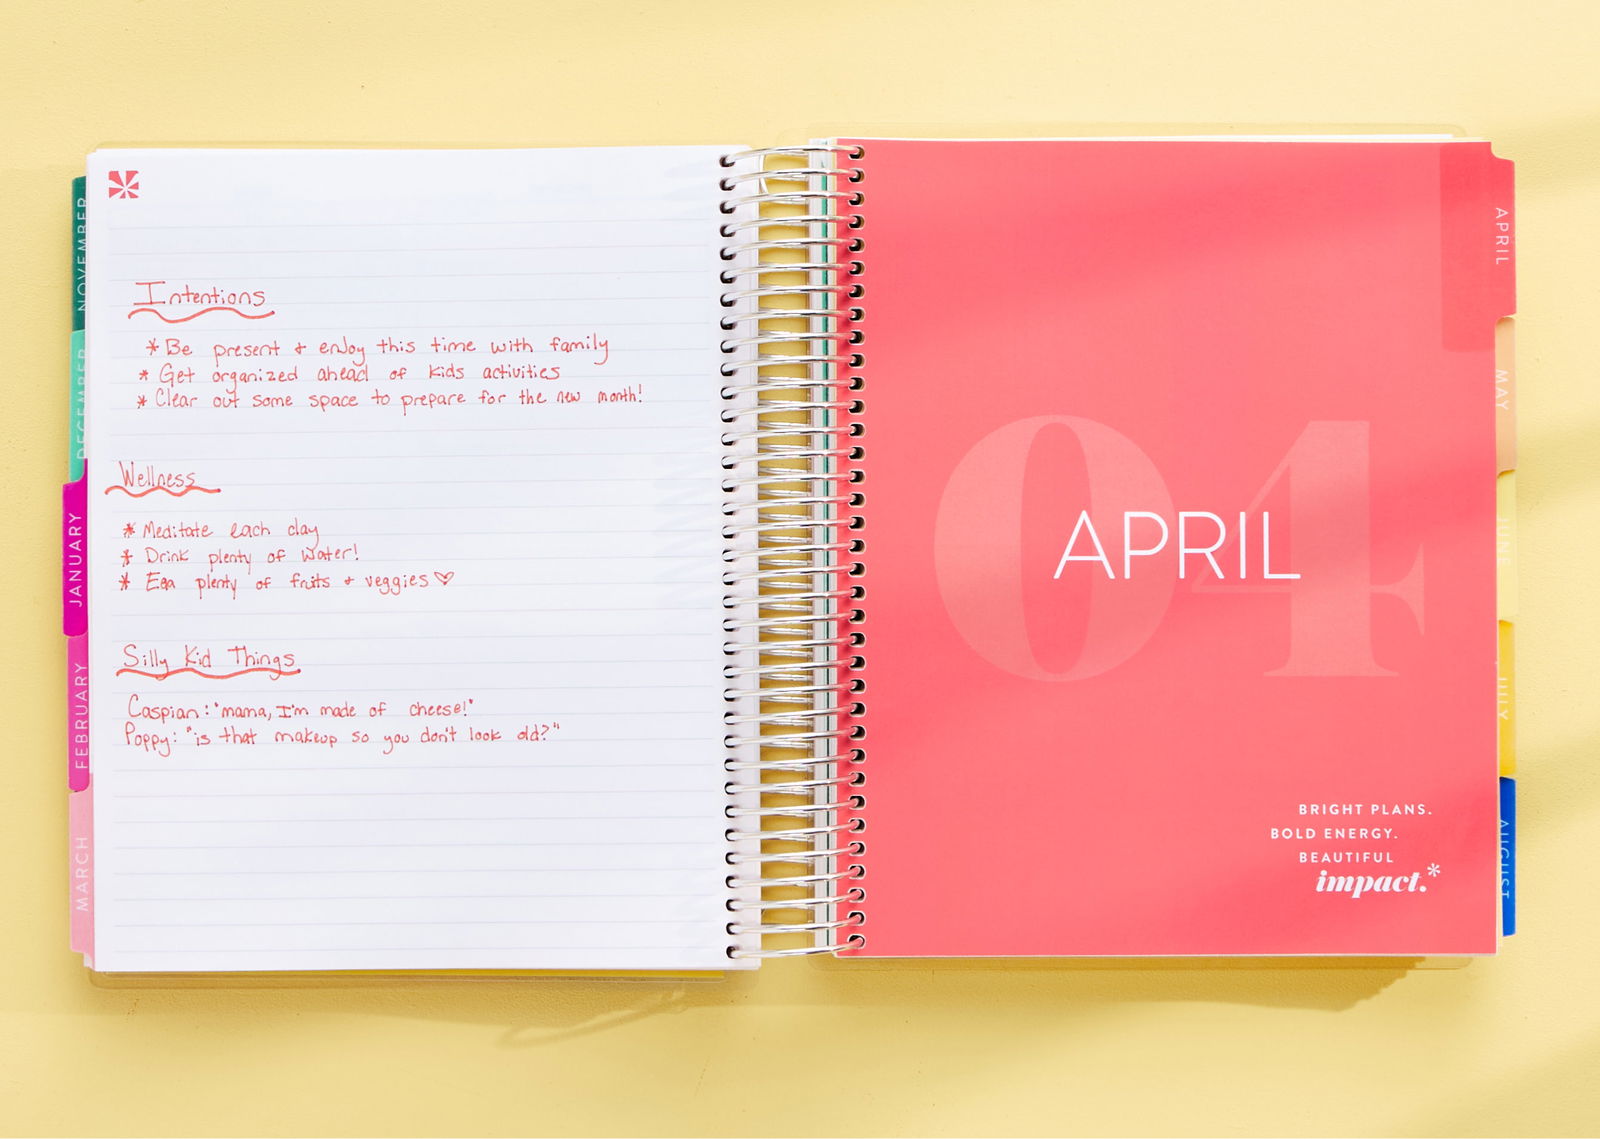 Intentions
* Be present + enjoy this time with family
* Get organized ahead of kids activities
* Clear out some space to prepare for the new month!
Wellness
* Meditate each day
* Drink plenty of water!
* Eea plenty of fruits + veggies♡
Silly Kid Things
Caspian: "mama, I'm made of cheese!"
Poppy: "is that makeup so you don't look old?"
NOVEMBER
DECEMBER
JANUARY
FEBRUARY
MARCH
04
APRIL
BRIGHT PLANS.
BOLD ENERGY.
BEAUTIFUL
impact.*
APRIL
MAY
JUNE
JULY
AUGUST